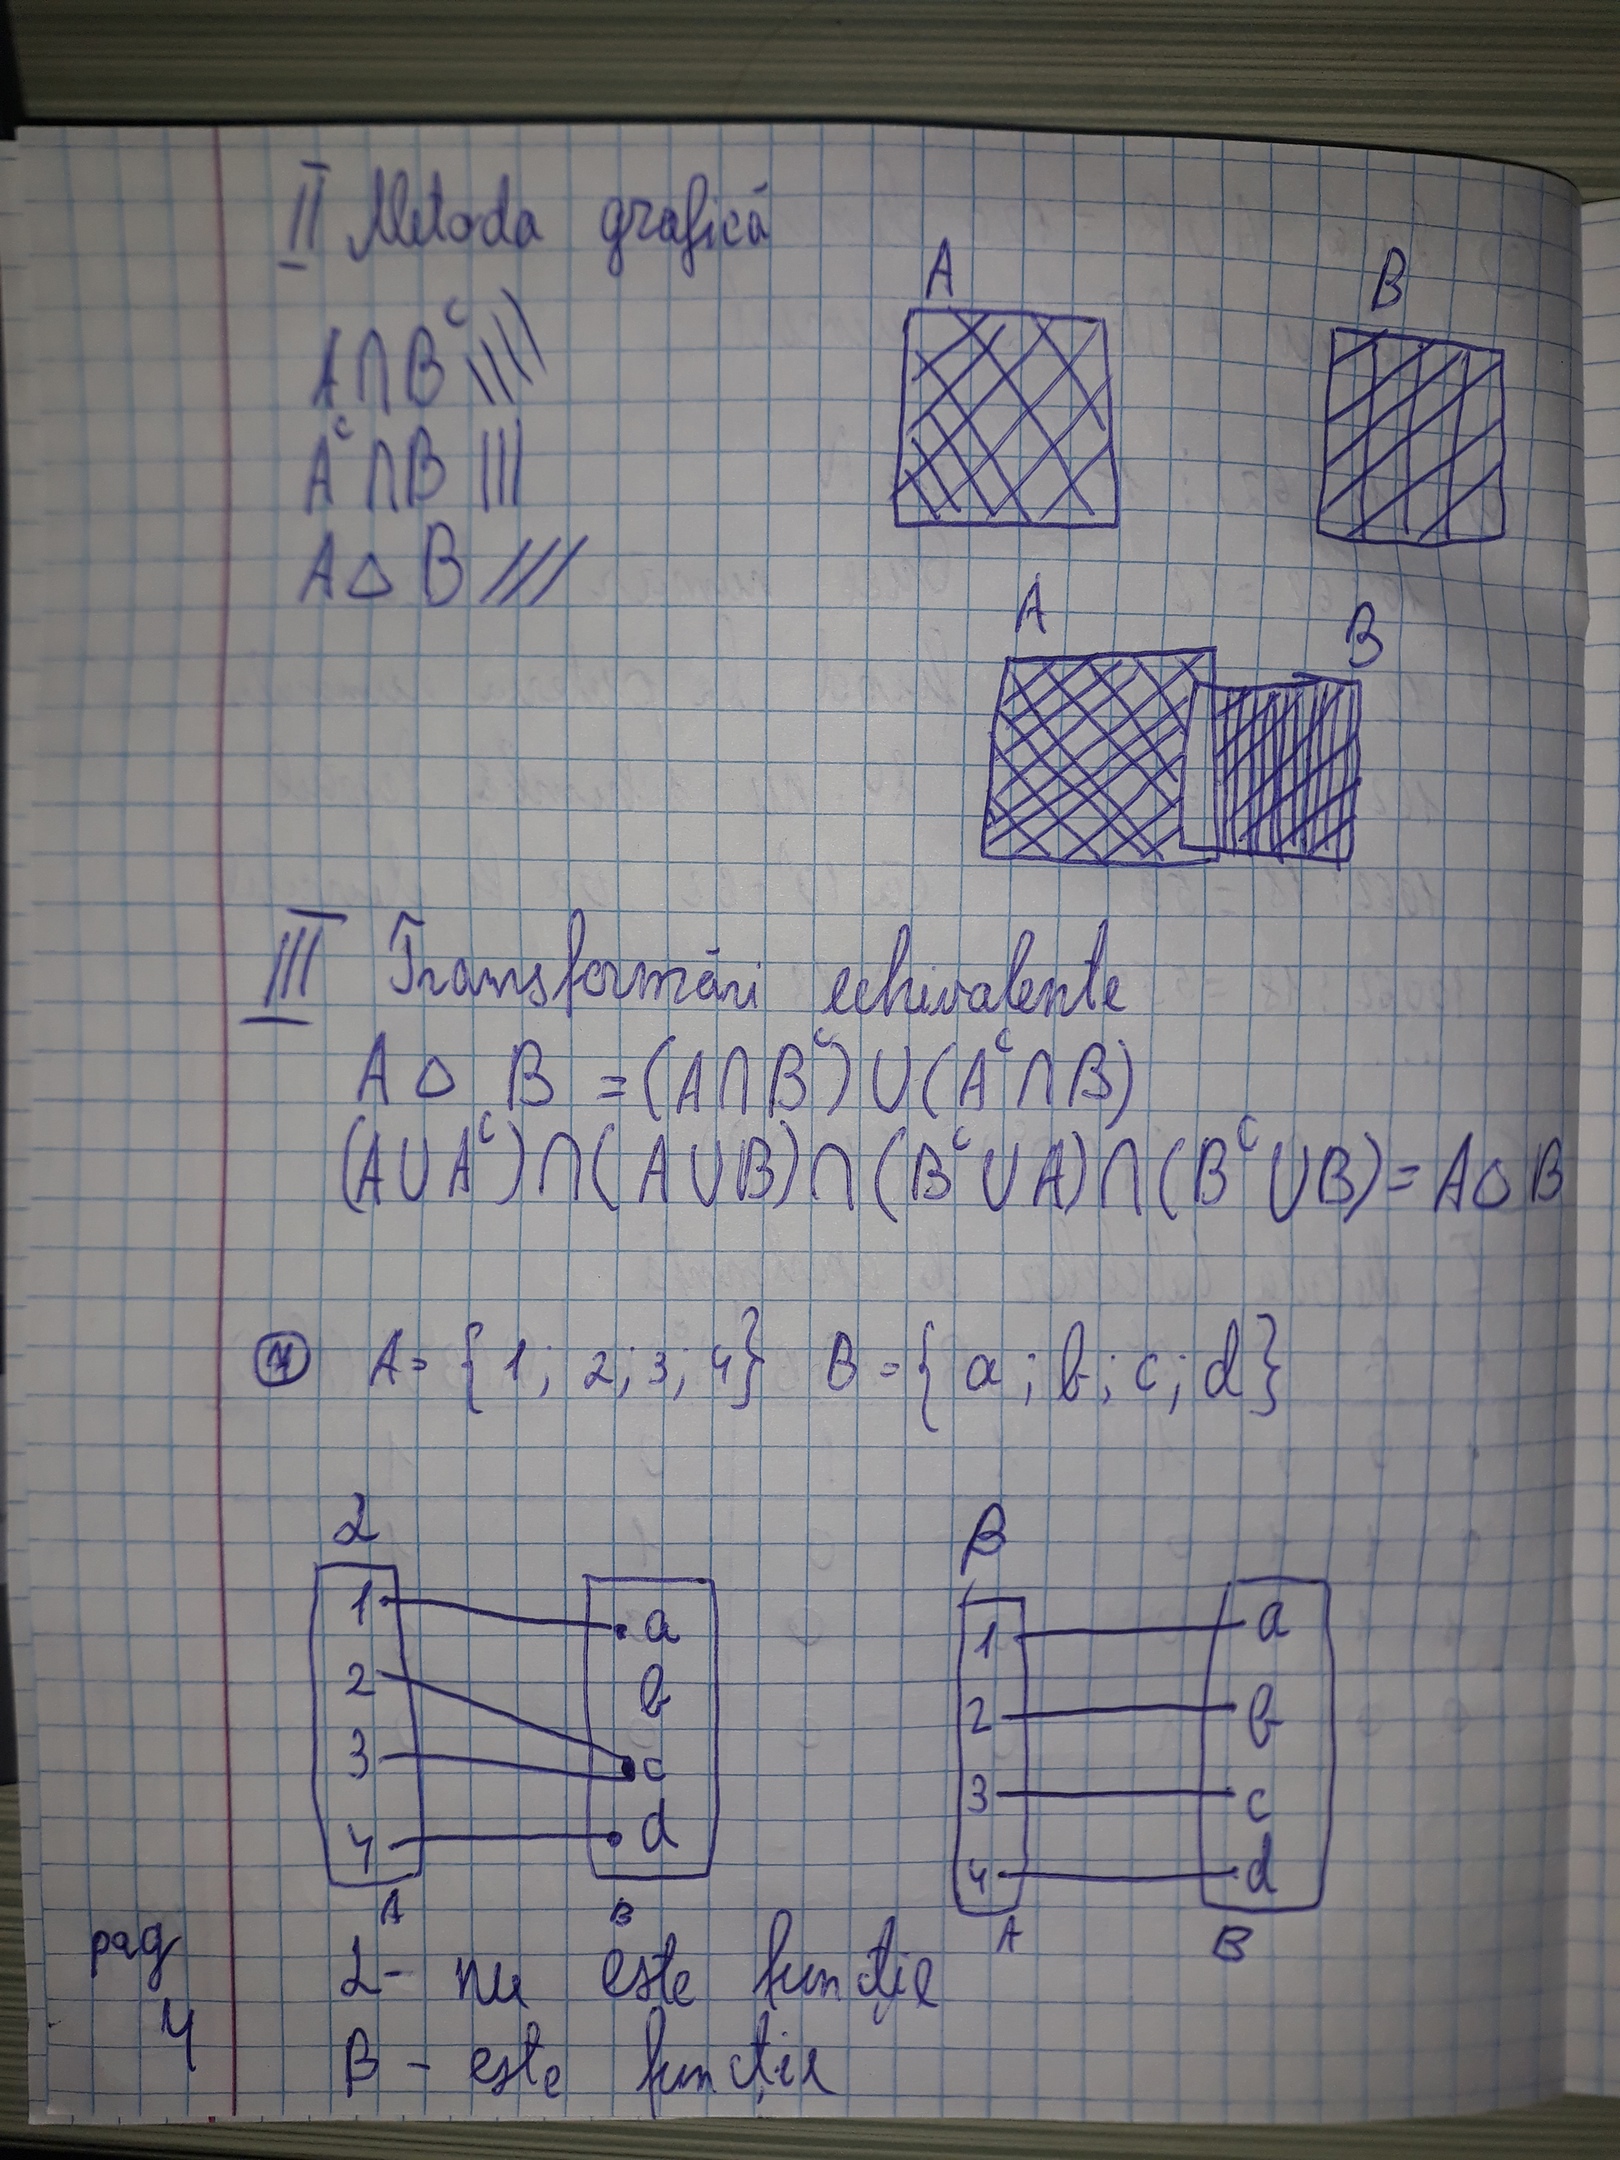 II Metoda grafică
A B
A∩Bᶜ
Aᶜ∩B
A△B
A B
III Transformări echivalente
A△B = (A∩Bᶜ)∪(Aᶜ∩B)
(A∪Aᶜ)∩(A∪B)∩(Bᶜ∪A)∩(Bᶜ∪B) = A△B
A = {1; 2; 3; 4} B = {a; b; c; d}
α β
1 a 1 a
2 b 2 b
3 c 3 c
4 d 4 d
A B A B
α - nu este funcție
β - este funcție
pag
4